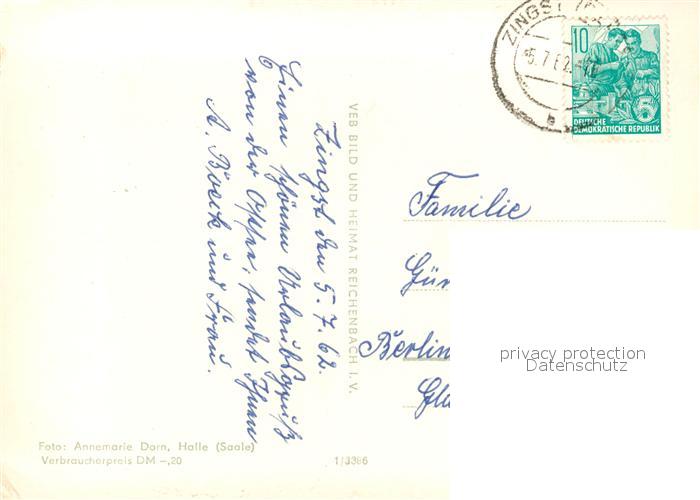 Zingst den 5.7.62.
Einen schönen Urlaubsgruß
von der Ostsee, sendet Ihnen
A. Boeck und Frau.
VEB BILD UND HEIMAT REICHENBACH I. V.
ZINGST
5.7.62
b
10
DEUTSCHE
DEMOKRATISCHE REPUBLIK
Familie
Berlin
privacy protection
Datenschutz
Foto: Annemarie Dorn, Halle (Saale)
Verbraucherpreis DM –,20
1/3386